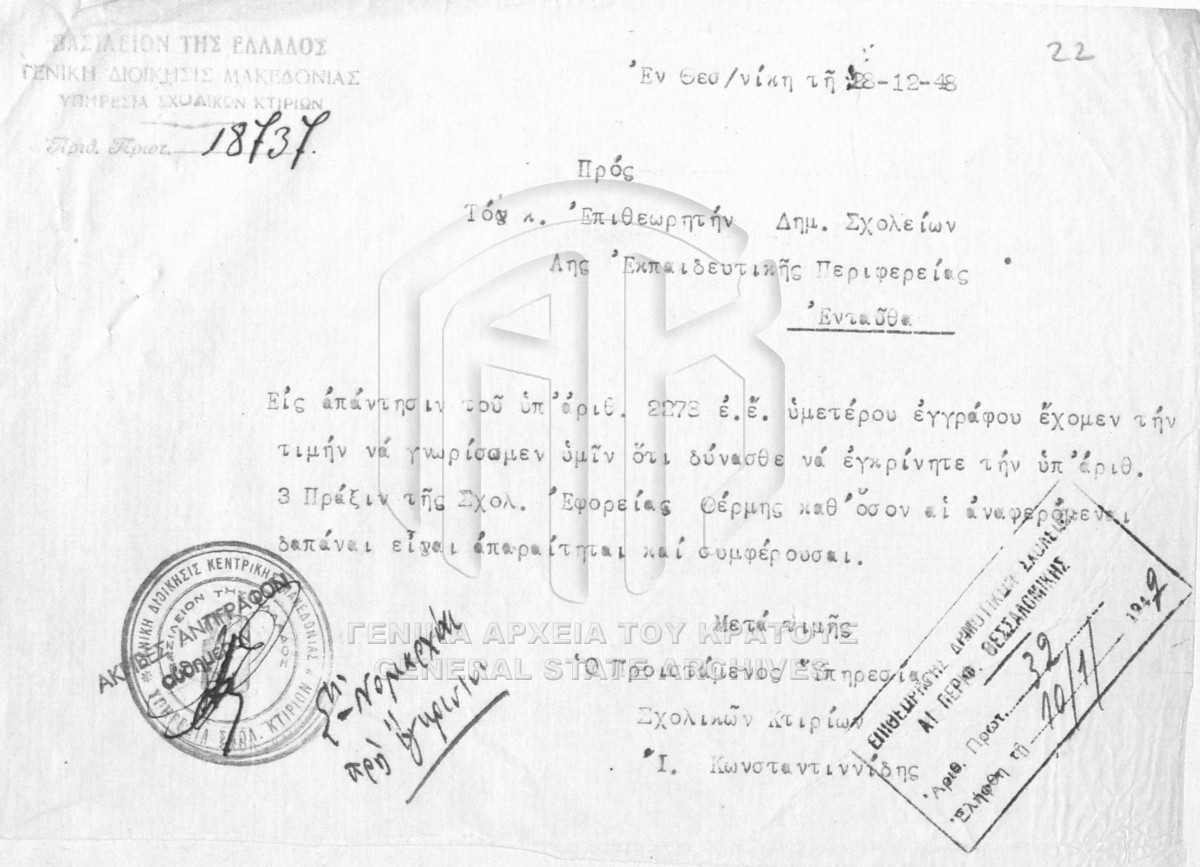 22
ΒΑΣΙΛΕΙΟΝ ΤΗΣ ΕΛΛΑΔΟΣ
ΓΕΝΙΚΗ ΔΙΟΙΚΗΣΙΣ ΜΑΚΕΔΟΝΙΑΣ
ΥΠΗΡΕΣΙΑ ΣΧΟΛΙΚΩΝ ΚΤΙΡΙΩΝ
Ἀριθ. Πρωτ. 18737.
Ἐν Θεσ/νίκη τῆ 28-12-48
Πρός
Τόν κ. Ἐπιθεωρητήν Δημ. Σχολείων
Αης Ἐκπαιδευτικῆς Περιφερείας
Ἐνταῦθα
Εἰς ἀπάντησιν τοῦ ὑπ'ἀριθ. 2273 ἐ.ἔ. ὑμετέρου ἐγγράφου ἔχομεν τήν
τιμήν νά γνωρίσωμεν ὑμῖν ὅτι δύνασθε νά ἐγκρίνητε τήν ὑπ'ἀριθ.
3 Πράξιν τῆς Σχολ. Ἐφορείας Θέρμης καθ'ὅσον αἱ ἀναφερόμεναι
δαπάναι εἶναι ἀπαραίτηται καί συμφέρουσαι.
Μετά τιμῆς
Ὁ Προϊστάμενος Ὑπηρεσίας
Σχολικῶν Κτιρίων
Ἰ. Κωνσταντιννίδης
ΓΕΝΙΚΗ ΔΙΟΙΚΗΣΙΣ ΚΕΝΤΡΙΚΗΣ ΜΑΚΕΔΟΝΙΑΣ
ΥΠΗΡΕΣΙΑ ΣΧΟΛ. ΚΤΙΡΙΩΝ
ΒΑΣΙΛΕΙΟΝ ΤΗΣ ΕΛΛΑΔΟΣ
ΑΚΡΙΒΕΣ ΑΝΤΙΓΡΑΦΟΝ
αὐθημερόν
ΕΠΙΘΕΩΡΗΤΗΣ ΔΗΜΟΤΙΚΩΝ ΣΧΟΛΕΙΩΝ
Α! ΠΕΡΙΦ. ΘΕΣΣΑΛΟΝΙΚΗΣ
Ἀριθ. Πρωτ. 32
Ἐλήφθη τῆ 10/1/
ΓΕΝΙΚΑ ΑΡΧΕΙΑ ΤΟΥ ΚΡΑΤΟΥΣ
GENERAL STATE ARCHIVES